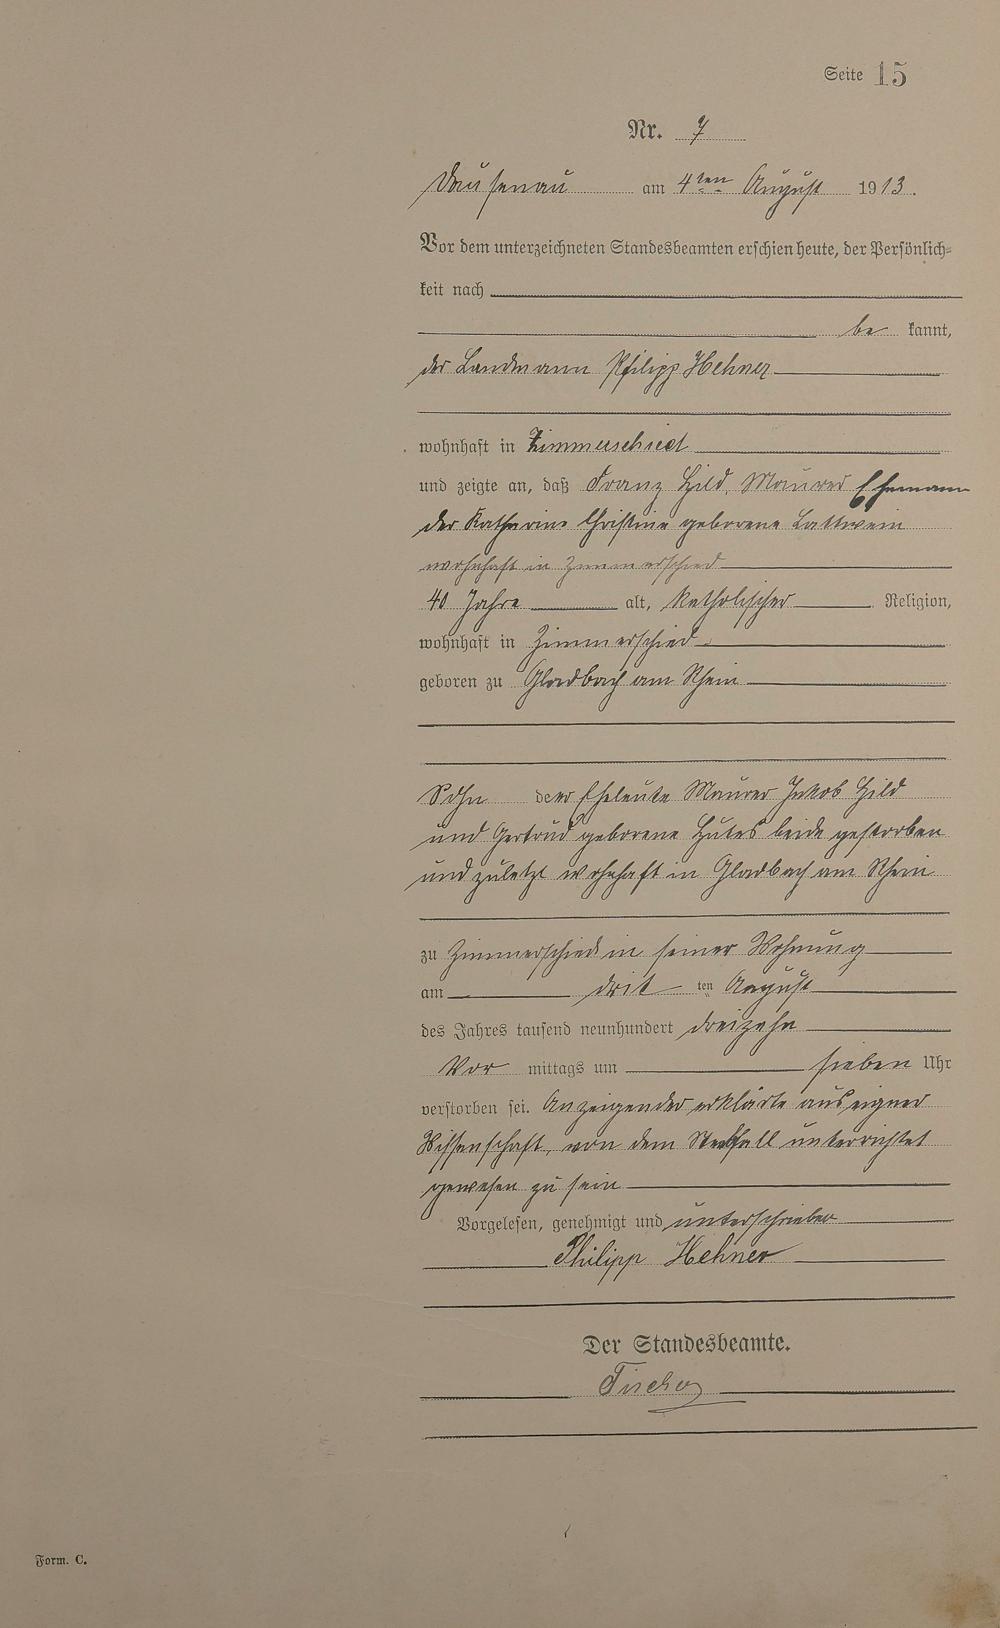 Seite 15
Nr. 7
Dausenau am 4ten August 1913.
Vor dem unterzeichneten Standesbeamten erschien heute, der Persönlich=
keit nach
be kannt,
der Landmann Philipp Hehner
wohnhaft in Zimmerschied
und zeigte an, daß Franz Hild, Maurer Ehemann
der Katharine Christine geborene Lattwein
wohnhaft in Zimmerschied
40 Jahre alt, katholischer Religion,
wohnhaft in Zimmerschied
geboren zu Gladbach am Rhein
Sohn der Eheleute Maurer Jakob Hild
und Gertrud geborene beide gestorben
und zuletzt wohnhaft in Gladbach am Rhein
zu Zimmerschied in seiner Wohnung
am drit ten August
des Jahres tausend neunhundert dreizehn
Vor mittags um sieben Uhr
verstorben sei. Anzeigender erklärte aus eigner
Wissenschaft, von dem Sterbfall unterrichtet
gewesen zu sein
Vorgelesen, genehmigt und unterschrieben
Philipp Hehner
Der Standesbeamte.
Form. C.